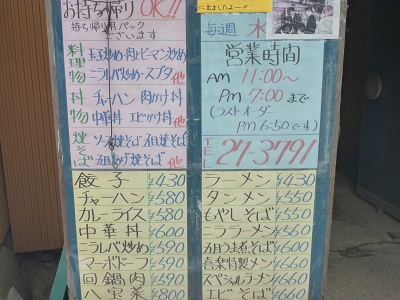 お持ち帰り OK!!
持ち帰り用パック
ございます
料理物
玉子炒め・肉とピーマン炒め
ニラレバ炒め・スブタ 他
丼物
チャーハン 肉かけ丼
中華丼 エビかけ丼 他
焼そば
ソース焼そば 五目焼そば
五目かた焼そば 他
餃子 ¥430
チャーハン ¥580
カレーライス ¥580
中華丼 ¥600
ニラレバ炒め ¥590
マーボドーフ ¥590
回鍋肉 ¥590
八宝菜 ¥800
に出ましたよー!!
毎週 水
営業時間
AM 11:00〜
PM 7:00まで
(ラストオーダー
PM 6:50です)
TEL 27-3791
ラーメン ¥430
タンメン ¥550
もやしそば ¥550
ニララーメン ¥560
五目うま煮そば ¥600
喜楽特製メン ¥660
スペシャルラーメン ¥660
エビそば ¥660